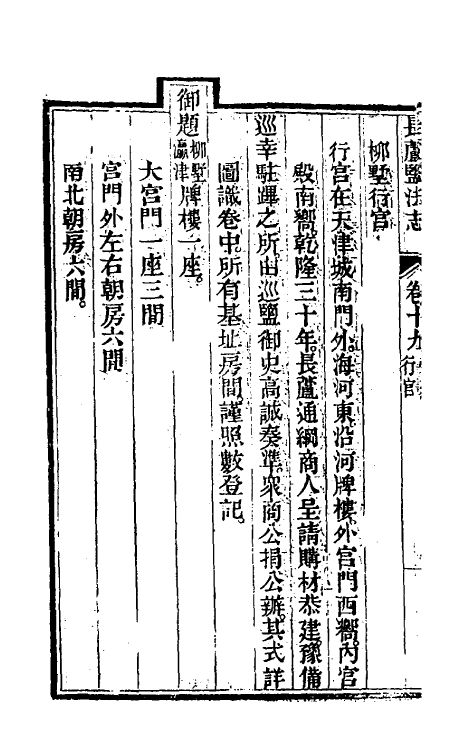 長蘆鹽法志
卷十九行宮
柳墅行宮
行宮在天津城南門外海河東沿河牌樓外宮門西嚮內宮
殿南嚮乾隆三十年長蘆通綱商人呈請購材恭建豫備
巡幸駐蹕之所由巡鹽御史高誠奏準衆商公捐公辦其式詳
圖識卷中所有基址房間謹照數登記
御題柳墅瀛津牌樓一座
大宮門一座三間
宮門外左右朝房六間
南北朝房六間